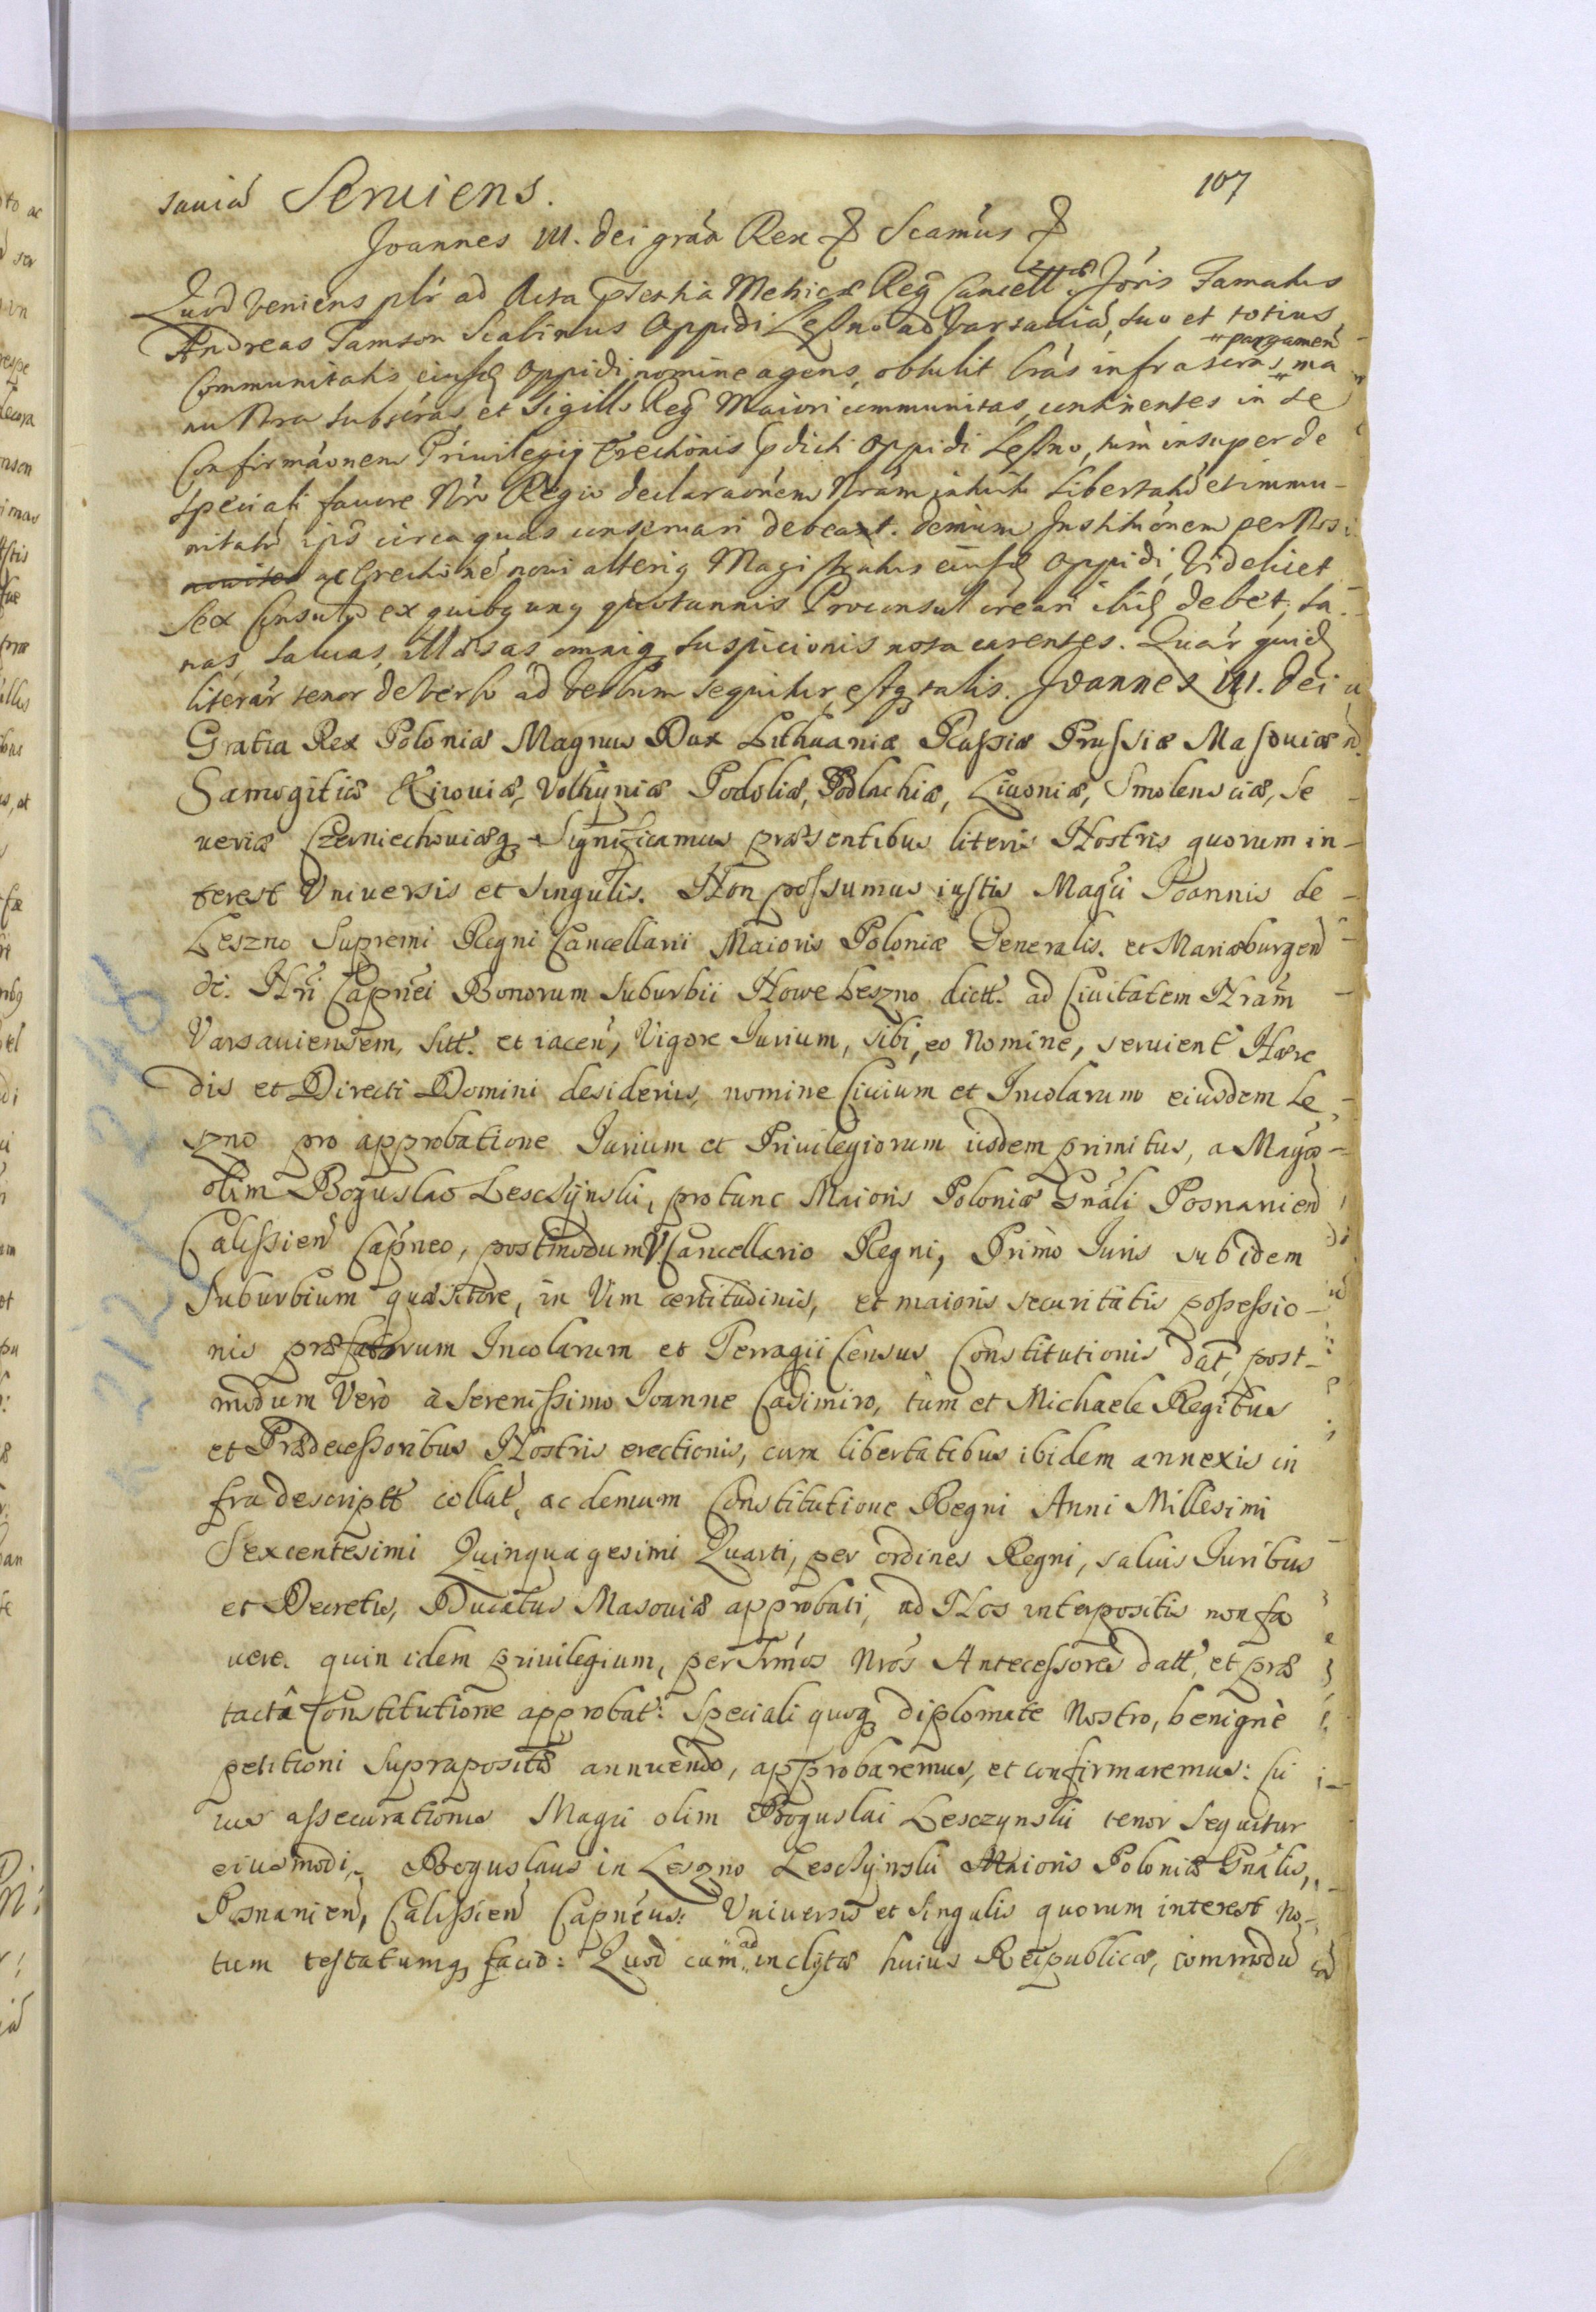 107
sauiã Seruiens.
Joannes III. dei grãa Rex & Scamus &
Quod veniens plr ad Acta prsentia Metricæ Reg Cancellæ Maioris Famatus
Andreas Jamson Scabinus Oppidi Leszno ad Varsauiã, suo et totius
Communitatis eiusd Oppidi nomine agens, obtulit lras infrascras pargamen ma
nu Nra subscras, et Sigillo Reg Maiori communitas, continentes in se
Confirmãonem Priuilegij Erectionis pdicti Oppidi Leszno, tum insuper de
speciali fauore Nro Regio declarãonem Nram intuitu libertatũ et immu-
nitatũ ijs circa quas conseruari debeant. demum Institutionem per Nos
ac Erectionẽ noui alterig Magistratus eiusd Oppidi, Videlicet
sex Consulũ ex quibg ung quotannis Proconsul creari ibid debet, sa
nas, saluas, illæsas omnig suspicionis nota carentes. Quãr quid
literãr tenor de verbo ad verbum sequitur, estq talis. Joannes III. Dei
Gratia Rex Poloniæ Magnus Dux Lithuaniæ Russiæ Prussiæ Masouiæ
Samogitiæ Kiiouiæ, Volhyniæ Podoliæ, Podlachiæ, Liuoniæ, Smolensciæ, Se
ueriæ Czerniechouiæq Significamus præsentibus literis Nostris quorum in-
terest Vniuersis et singulis. Non possumus iustis Magci Joannis de
Leszno Supremi Regni Cancellarii Maioris Poloniæ Generalis. et Mariæburgen
dc. Nri Capnei Bonorum Suburbii Nowe Leszno dictt. ad Ciuitatem Nram
Varsauiensem, sitt. et iacen, Vigore Iurium, sibi, eo Nomine, seruient Hære
dis et Directi Domini desideriis, nomine Ciuium et Incolarum eiusdem Le
szno pro approbatione Iurium et Priuilegiorum iisdem primitus, a Magco
olim Boguslao Lesczÿnski, pro tunc Maioris Poloniæ Gnãli Posnanien
Calissien Capneo, postmodum V.Cancellario Regni, Primo Iuris sub idem
Suburbium quæsitore, in Vim certitudinis, et maioris securitatis possessio-
nis præfatorum Incolarum et Terragii Census Constitutionis dat, post-
modum Verò à Serenissimo Ioanne Casimiro, tùm et Michaele Regibus
et Prædecessoribus Nostris erectionis, cum libertatibus ibidem annexis in
fra descriptt collat, ac demum Constitutione Regni Anni Millesimi
Sexcentesimi Quinquagesimi Quarti, per ordines Regni, saluis Iuribus
et Decretis, Ducatus Masouiæ approbati, ad Nos interpositis non fa
uere. quin idem priuilegium, per Srmos Nros Antecessores datt, et præ
tactâ Constitutione approbat: Speciali quoq diplomate Nostro, benignè
petitioni supraposità annuendo, approbaremus, et confirmaremus: Cu
ius assecurationis Magci olim Boguslai Lesczynski tenor sequitur
eiusmodi, Boguslaus in Leszno Lesczÿnski Maioris Poloniæ Gnãlis,
Posnanien, Calissien Capneus: Vniuersis et singulis quorum interest no
tum testatumq facio: Quod cum ad inclytæ huius Reipublicæ, commodũ